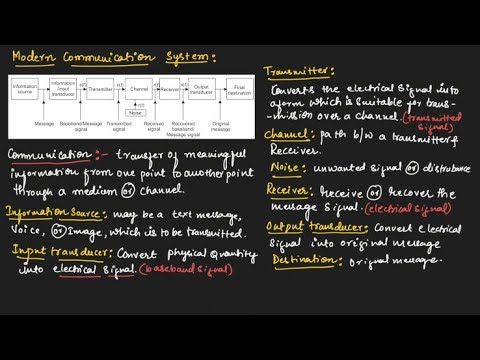 Modern Communication System:
Information source
Information /Input transducer
Transmitter
Channel
Receiver
Output transducer
Final destination
Noise
Message
Baseband/Message signal
Transmitted signal
Received signal
Recovered baseband/ Message signal
Original message
Communication :- transfer of meaningful
information from one point to another point
through a medium or channel.
Information Source: may be a text message,
Voice, or Image, which is to be transmitted.
Input transducer: Convert physical Quantity
into electrical signal. (baseband signal)
Transmitter:
Converts the electrical signal into
a form which is suitable for trans-
-mission over a channel. (transmitted
signal)
Channel: path b/w a transmitter &
Receiver.
Noise: unwanted signal or disturbance
Receiver: Receive or Recover the
message signal. (electrical signal)
Output transducer: Convert electrical
signal into original message
Destination: original message.